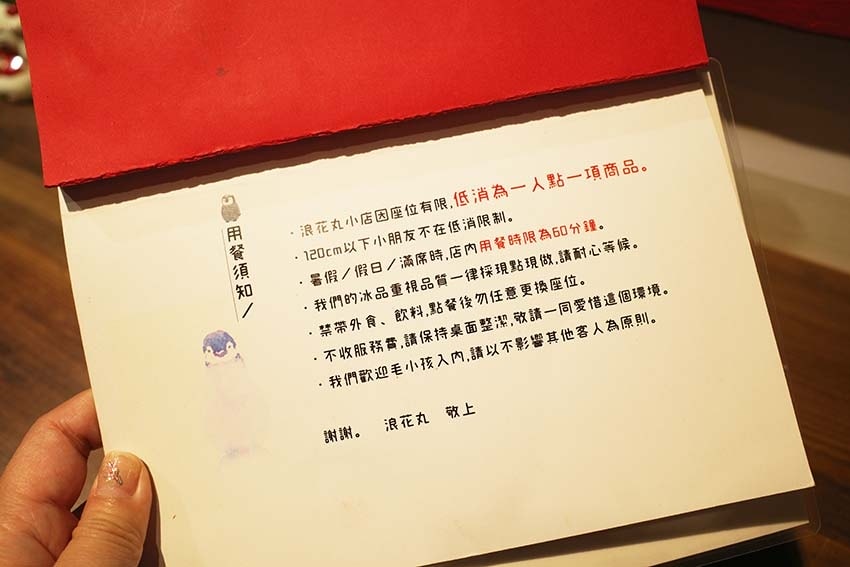 用餐須知
・浪花丸小店因座位有限,低消為一人點一項商品。
・120cm以下小朋友不在低消限制。
・暑假/假日/滿席時,店內用餐時限為60分鐘。
・我們的冰品重視品質一律採現點現做,請耐心等候。
・禁帶外食、飲料,點餐後勿任意更換座位。
・不收服務費,請保持桌面整潔,敬請一同愛惜這個環境。
・我們歡迎毛小孩入內,請以不影響其他客人為原則。
謝謝。 浪花丸 敬上